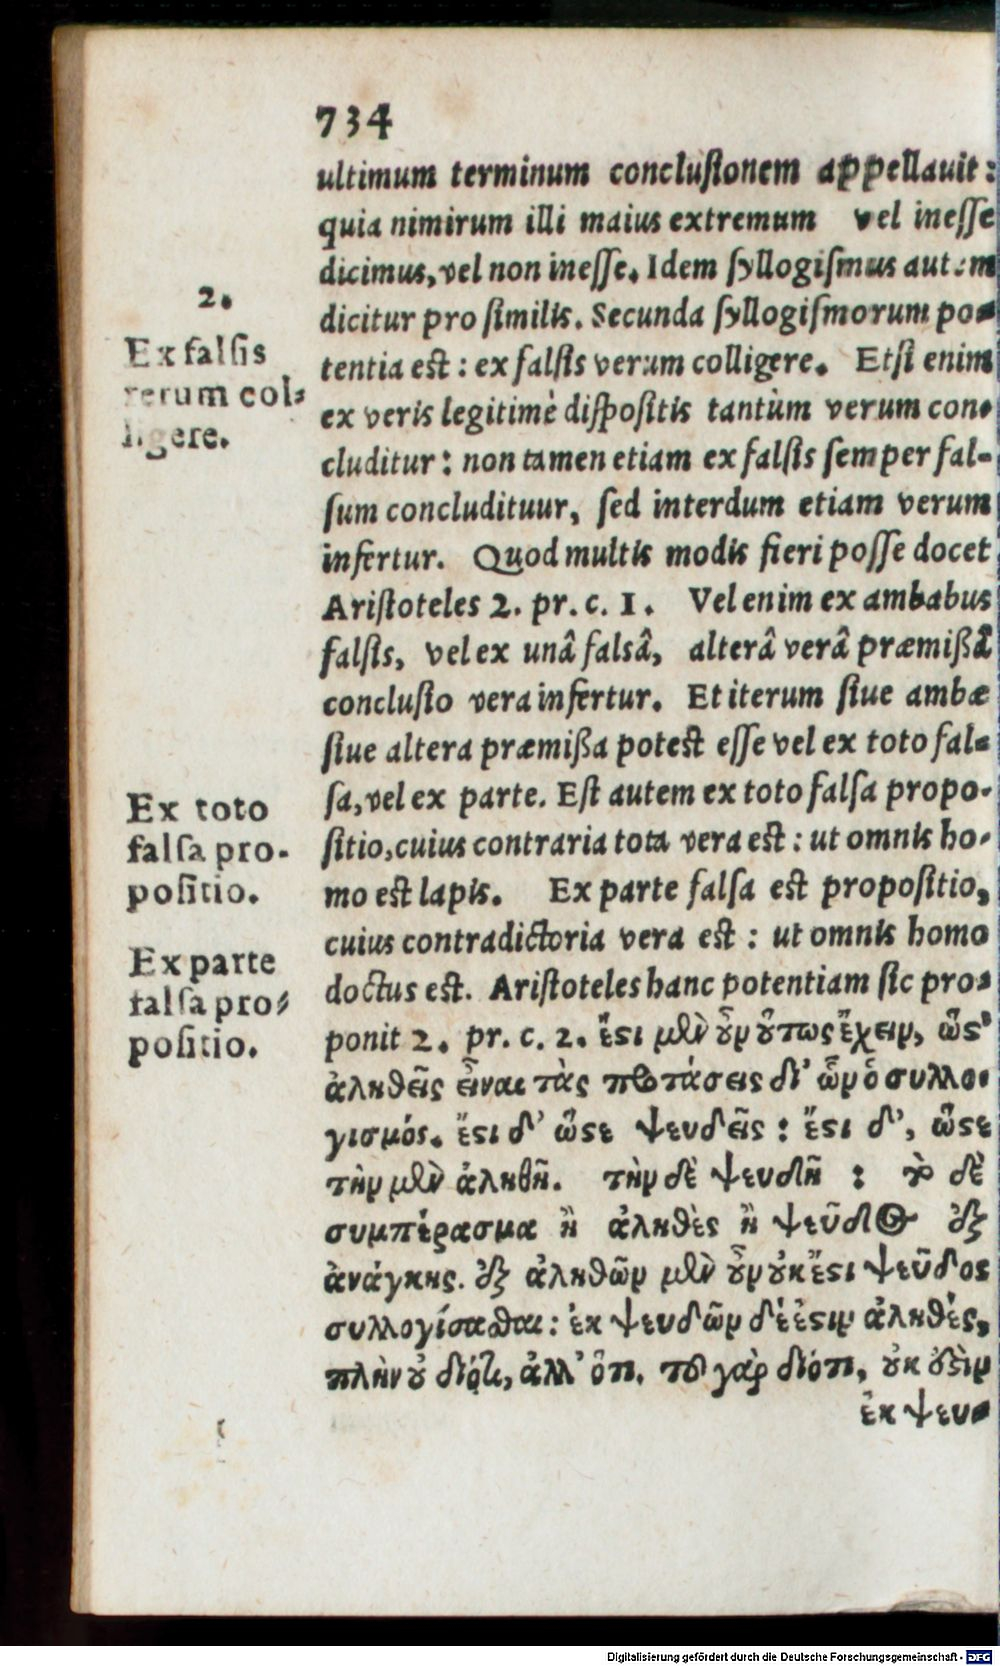 734
ultimum terminum conclusionem appellauit:
quia nimirum illi maius extremum vel inesse
dicimus, vel non inesse. Idem syllogismus autem
dicitur pro similis. Secunda syllogismorum po-
tentia est: ex falsis verum colligere. Etsi enim
ex veris legitimè dispositis tantùm verum con-
cluditur: non tamen etiam ex falsis semper fal-
sum concludituur, sed interdum etiam verum
infertur. Quod multis modis fieri posse docet
Aristoteles 2. pr. c. 1. Vel enim ex ambabus
falsis, vel ex unâ falsâ, alterâ verâ præmißâ
conclusio vera infertur. Et iterum siue ambæ
siue altera præmißa potest esse vel ex toto fal-
sa, vel ex parte. Est autem ex toto falsa propo-
sitio, cuius contraria tota vera est: ut omnis ho-
mo est lapis. Ex parte falsa est propositio,
cuius contradictoria vera est: ut omnis homo
doctus est. Aristoteles hanc potentiam sic pro-
ponit 2. pr. c. 2. ἔστι μὲν οὖν οὕτως ἔχειν, ὥστ'
ἀληθεῖς εἶναι τὰς προτάσεις δι' ὧν ὁ συλλο-
γισμός. ἔστι δ' ὥστε ψευδεῖς: ἔστι δ', ὥστε
τὴν μὲν ἀληθῆ. τὴν δὲ ψευδῆ: τὸ δὲ
συμπέρασμα ἢ ἀληθὲς ἢ ψεῦδος ἐξ
ἀνάγκης. ἐξ ἀληθῶν μὲν οὖν οὐκ ἔστι ψεῦδος
συλλογίσασθαι: ἐκ ψευδῶν δέ ἐστιν ἀληθές,
πλὴν οὐ διότι, ἀλλ' ὅτι. τοῦ γὰρ διότι, οὐκ ἔστιν
ἐκ ψευ-
2.
Ex falsis
verum col-
ligere.
Ex toto
falsa pro-
positio.
Ex parte
falsa pro-
positio.
Digitalisierung gefördert durch die Deutsche Forschungsgemeinschaft - DFG